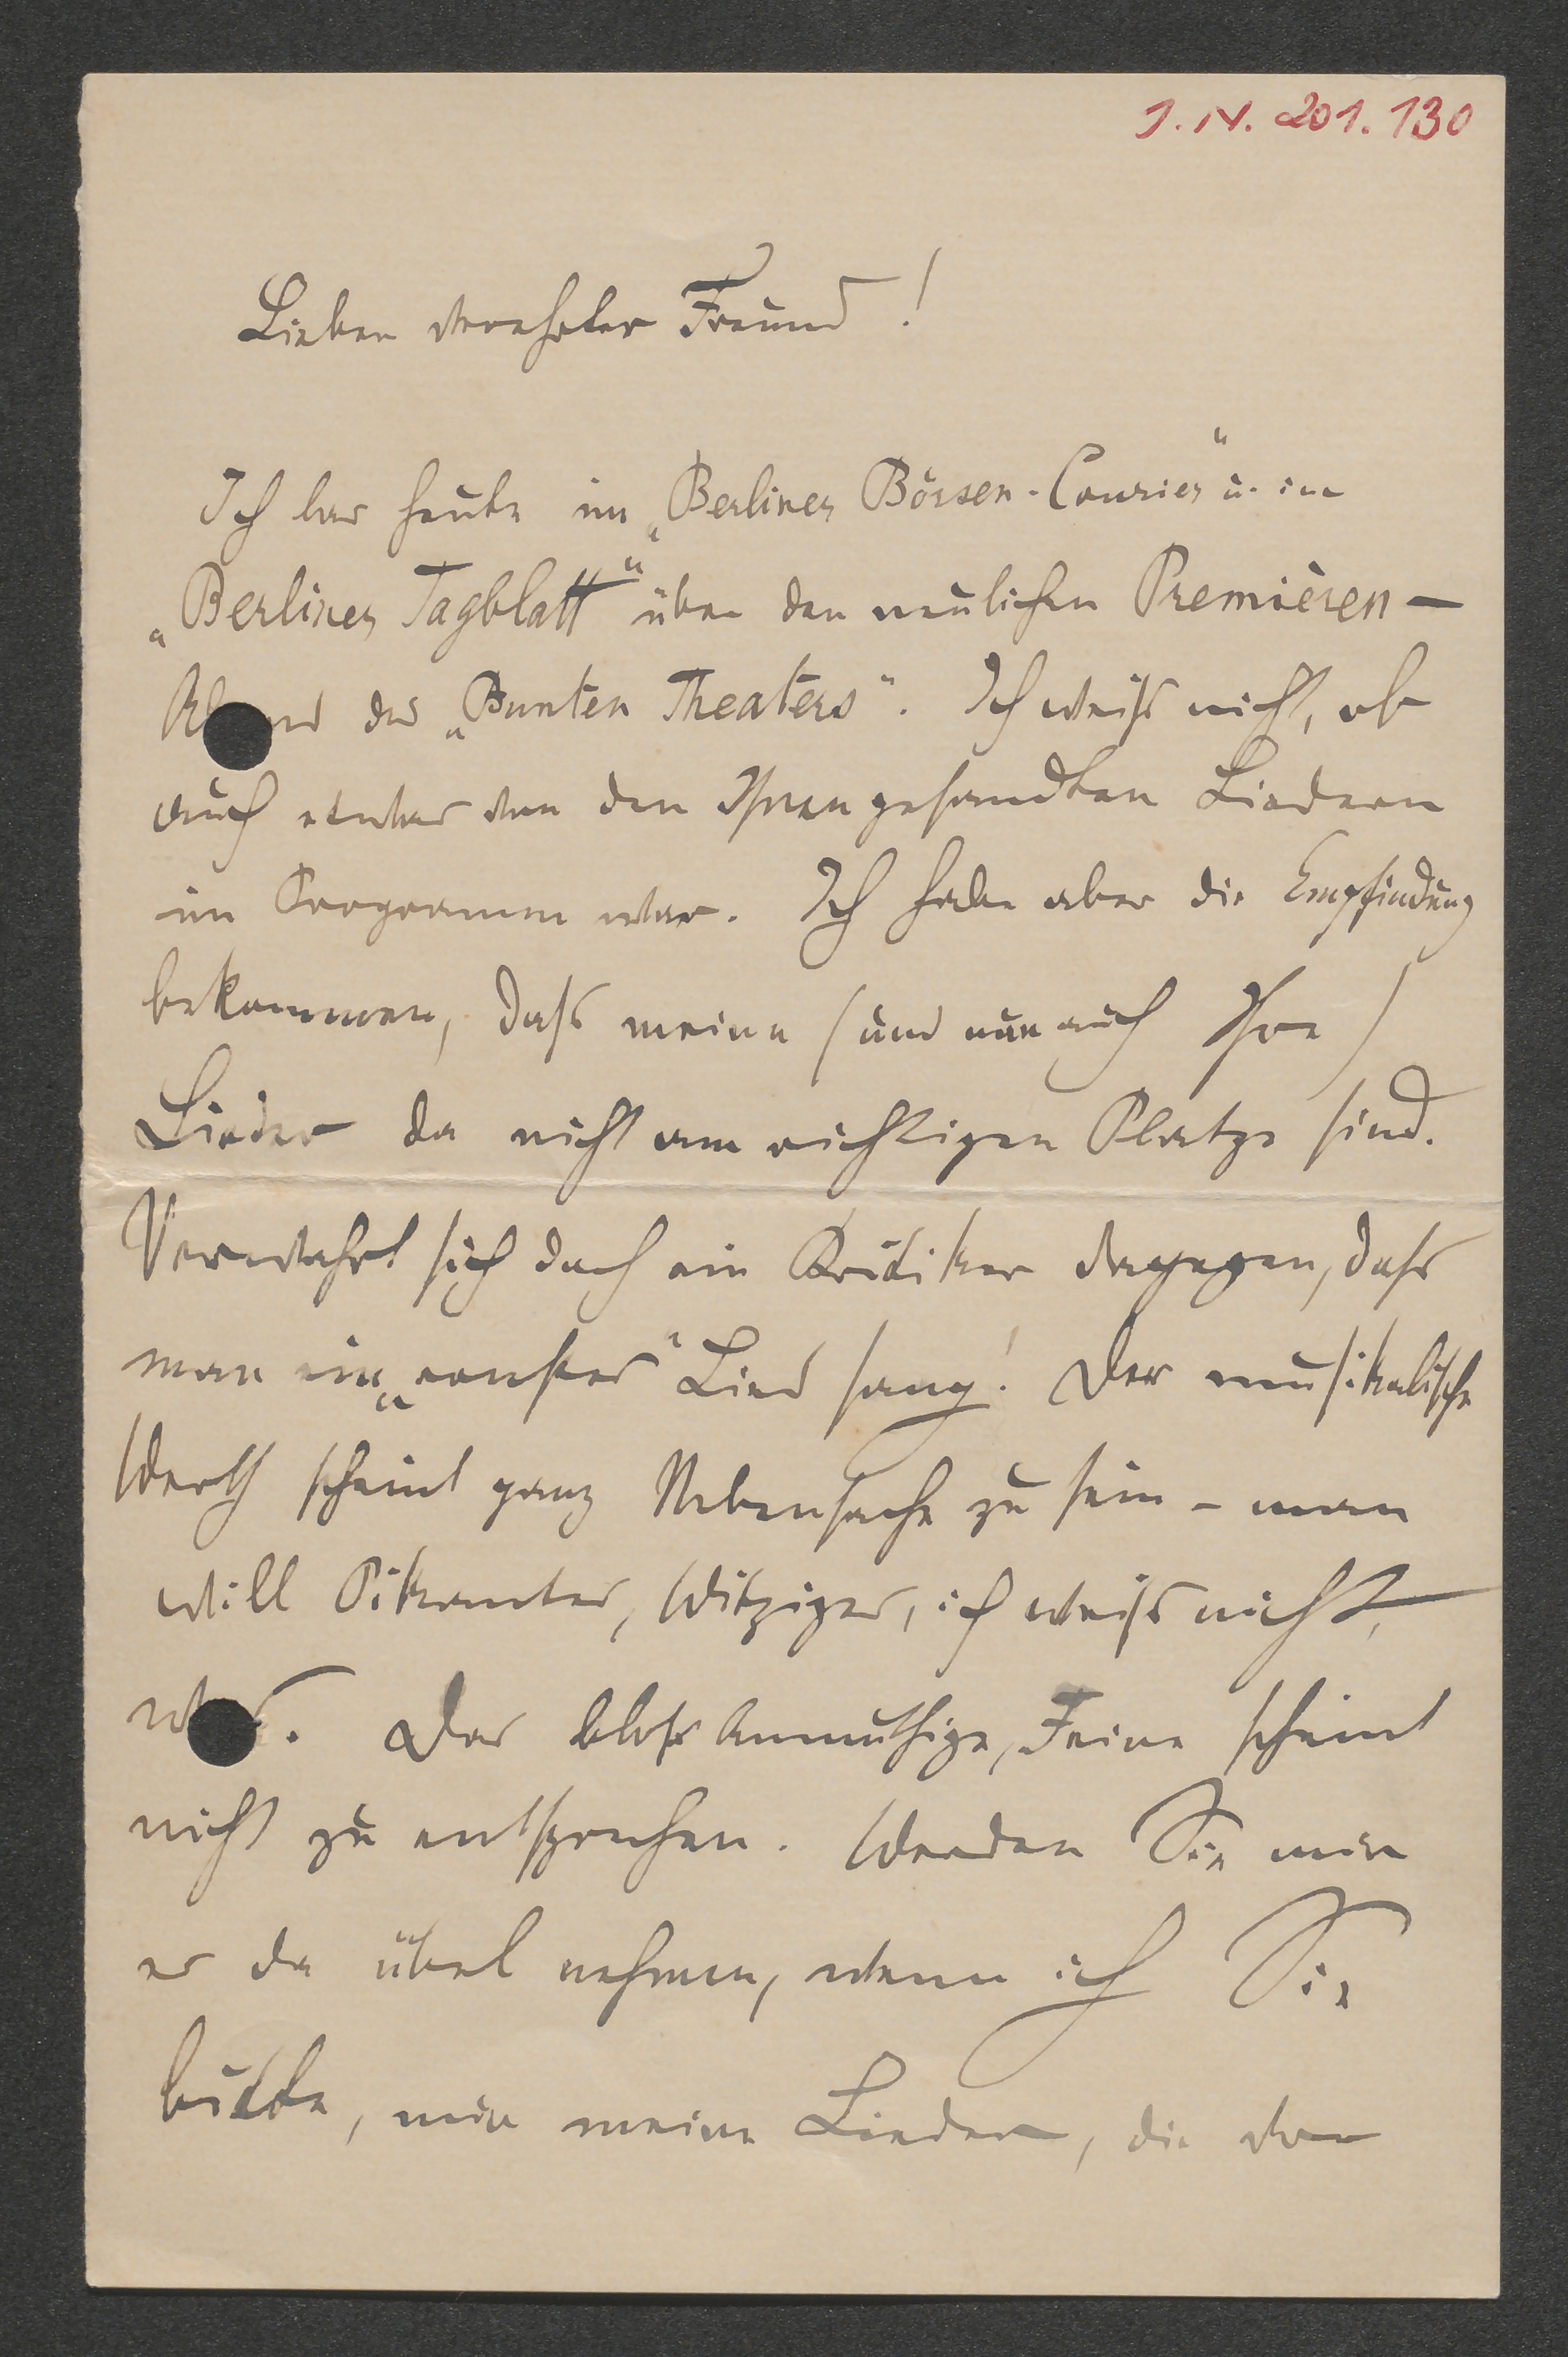 I. N. 201.130
Lieber verehrter Freund!
Ich las heute im „Berliner Börsen-Courier“ u. im
„Berliner Tagblatt“ über den neulichen Premièren-
Abend des „Bunten Theaters“. Ich weiß nicht, ob
auch etwas von den Ihnen gesandten Liedern
im Programm war. Ich habe aber die Empfindung
bekommen, daß meine (und nun auch Ihre)
Lieder da nicht am richtigen Platze sind.
Verwahrt sich doch ein Kritiker dagegen, daß
man ein „ernstes“ Lied sang! Der musikalische
Werth scheint ganz Nebensache zu sein – man
will Pikantes, Witziges, ich weiß nicht,
was. Das bloß Anmuthige, Feine scheint
nicht zu entsprechen. Werden Sie mir
es da übel nehmen, wenn ich Sie
bitte, mir meine Lieder, die von